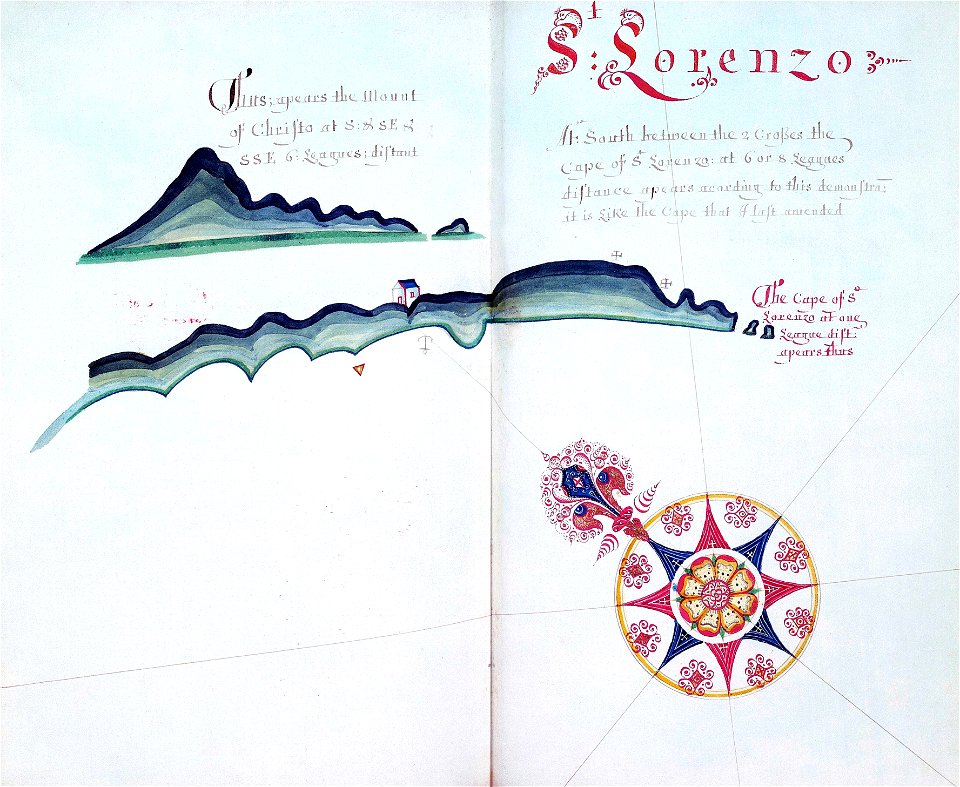 St: Lorenzo:
This; apears the Mount
of Christo at S: & SE &
SSE 6: Leagues; distant
At: South between the 2 Croßes the
Cape of St Lorenzo: at 6 or 8 Leagues
distance apears acording to this demonstra:
it is Like the Cape that I last amended
The Cape of St
Lorenzo at one
League dist:
apears thus